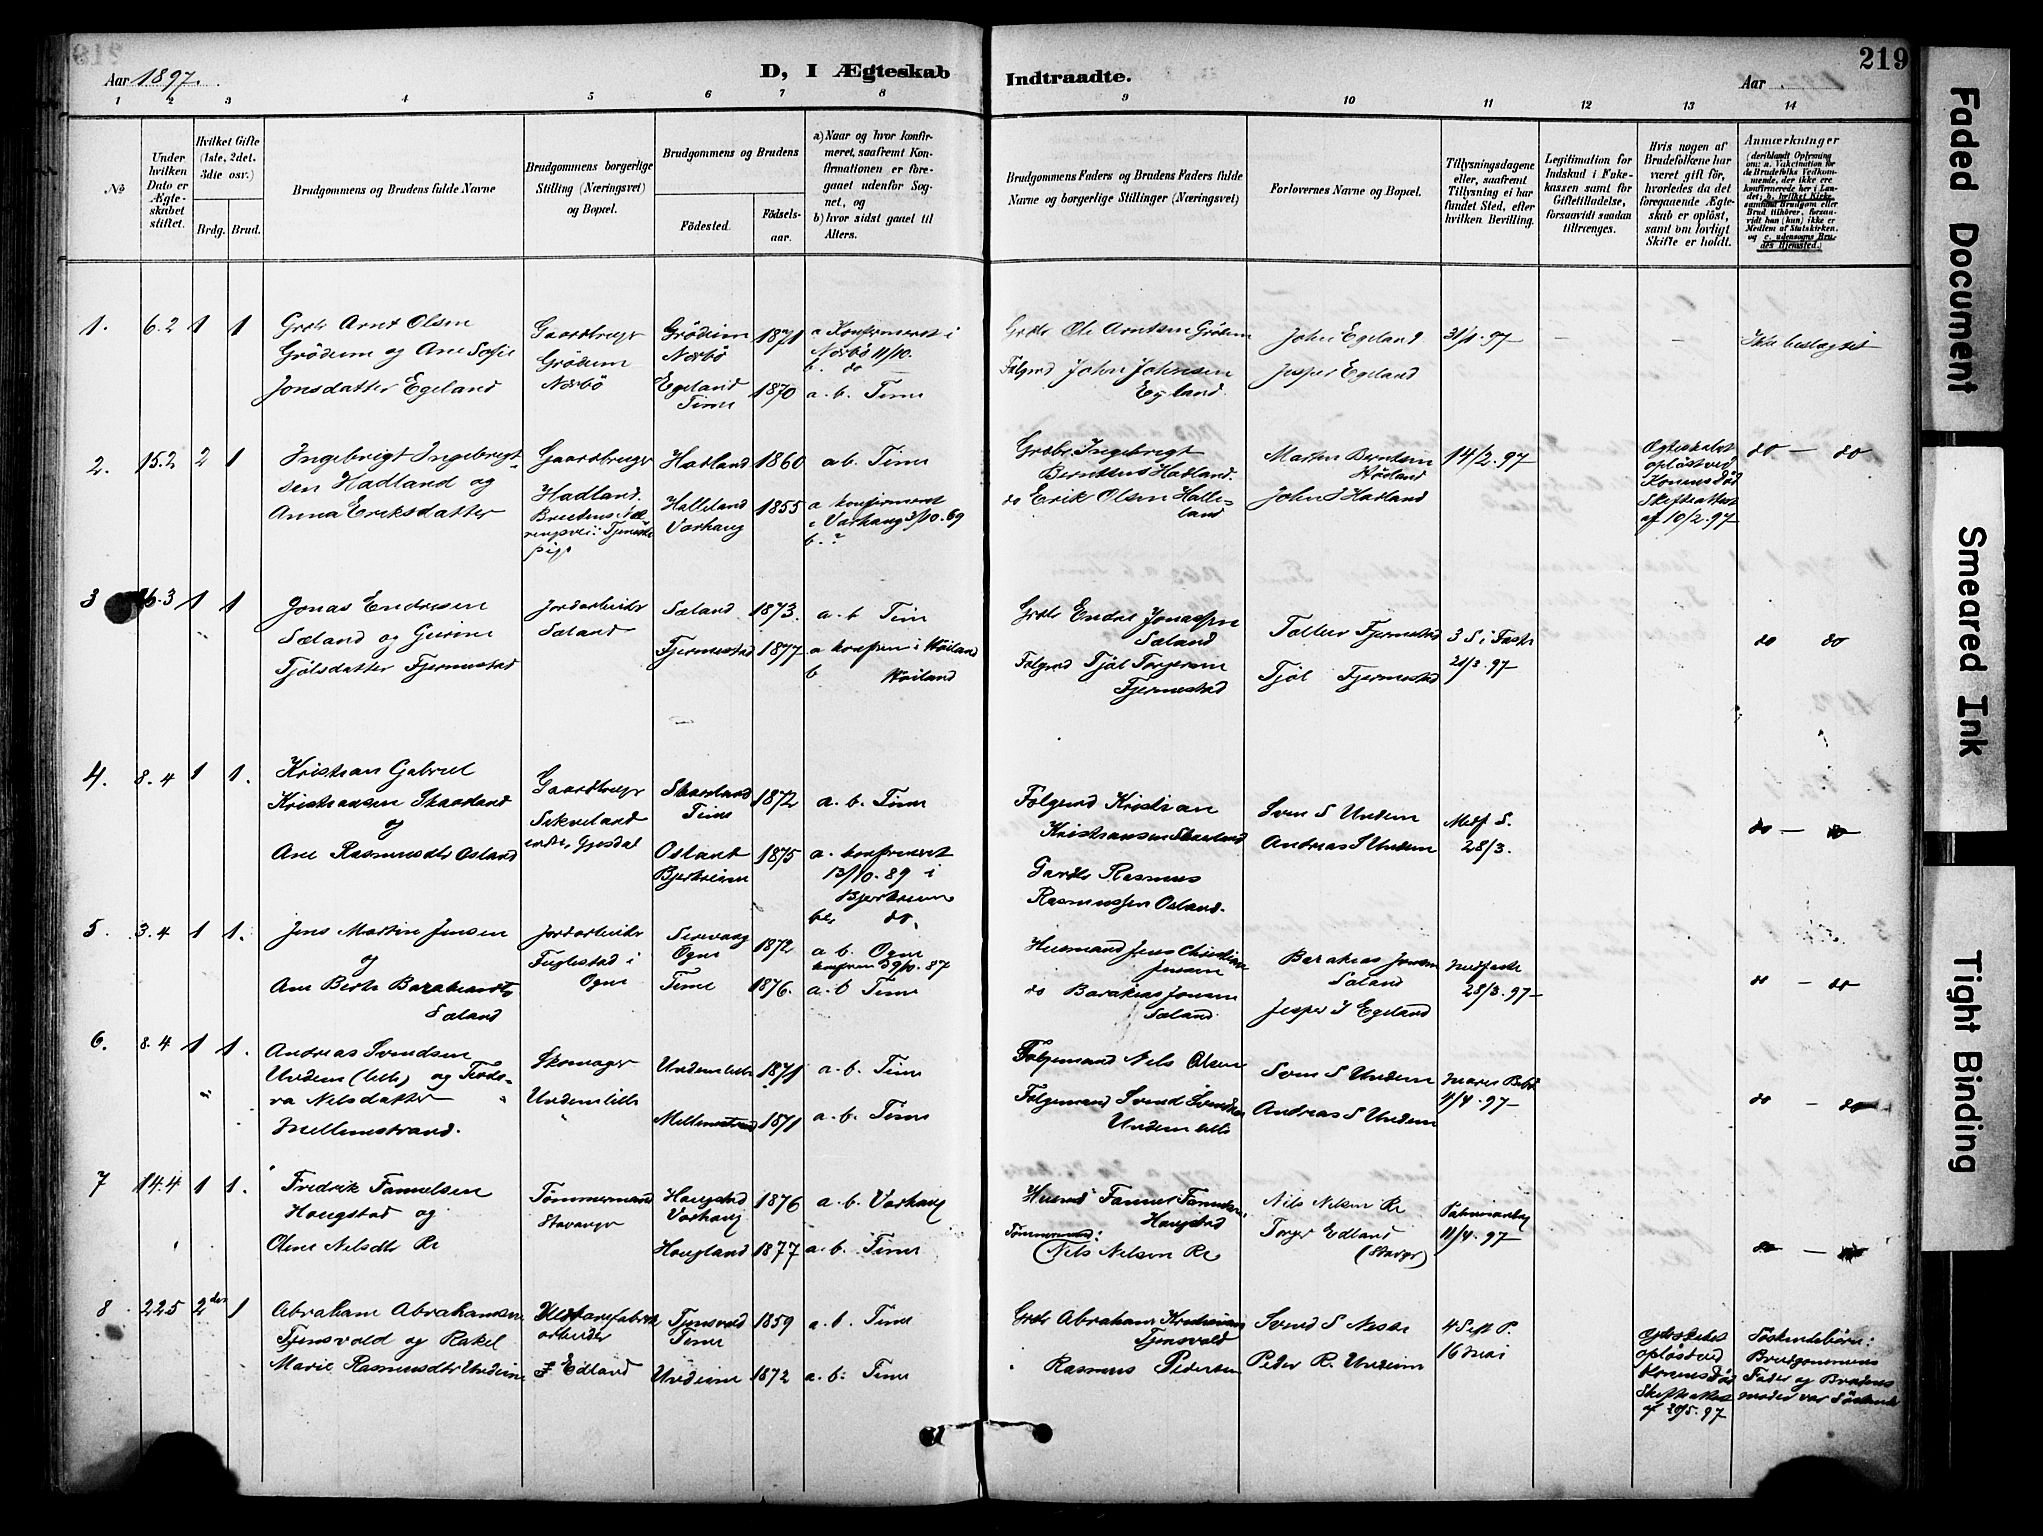 219
Aar 1897.
D, I Ægteskab
Indtraadte.
Aar
1 2 3 4 5 6 7 8 9 10 11 12 13 14
No
Under hvilken Dato er Ægteskabet stiftet.
Hvilket Gifte (1ste, 2det, 3die osv.)
Brdg. Brud.
Brudgommens og Brudens fulde Navne
Brudgommens borgerlige Stilling (Næringsvei) og Bopæl.
Brudgommens og Brudens
Fødested.
Fødsels-aar.
a) Naar og hvor konfirmeret, saafremt Konfirmationen er foregaaet udenfor Sognet, og
b) hvor sidst gaaet til Alters.
Brudgommens Faders og Brudens Faders fulde Navne og borgerlige Stillinger (Næringsvei)
Forlovernes Navne og Bopæl.
Tillysningsdagene eller, saafremt Tillysning ei har fundet Sted, efter hvilken Bevilling.
Legitimation for Indskud i Enkekassen samt for Giftetilladelse, forsaavidt saadan tiltrænges.
Hvis nogen af Brudefolkene har været gift før, hvorledes da det foregaaende Ægteskab er opløst, samt om lovligt Skifte er holdt.
Anmærkninger
(deriblandt Oplysning om: a. Vakcination for de Brudefolks Vedkommende, der ikke ere konfirmerede her i Landet; b. hvilket Kirkesamfund Brudgom eller Brud tilhører, forsaavidt han (hun) ikke er Medlem af Statskirken, og c. udensogns Brudes Hjemsted.)
1. 6.2 1 1
Grdbr Arnt Olsen
Grödem og Ane Sofie
Jonsdatter Egeland
Gaardbruger
Grödem
Norbö
Grödem
Norbö
1871
Egeland
Time
1870
a Konfirmeret i
Norbö 11/10.
b. do
a. b. Time
Grdbr Ole Arntsen Grödem
Folgmd John Johnsen
Egeland.
John Egeland
Jesper Egeland
31/1. 97
Ikke beslægtet
2. 15.2 2 1
Ingebrigt Ingebrigt-
sen Hadland og
Anna Eriksdatter
Gaardbruger
Hadland.
Hadland 1860
Halleland
Varhaug
1855
ab. Time
a konfirmeret
i Varhaug 3/10. 69
b. ?
Grdbr Ingebrigt
Berntsens Hadland.
do Erik Olsen Halle-
land
Martin Berntsen
Höiland
John I Hadland
14/2. 97
Ægteskabet
opløst ved
Konens Död
Skifteattest
af 10/2. 97
do — do
3 26.3 1 1
Jonas Endresen
Sæland og Gurine
Tjölsdatter Fjermestad
Jordarbeider
Sæland
Sæland 1873.
Fjermestad 1877
a. b Time
a konfirm i Höiland
b Höiland
Grdbr Endre Jonassen
Sæland
Folgmd Tjöl Torgersen
Fjermestad
Tollev Fjermestad
Tjöl Fjermestad
3 S i Faste
21/3. 97
do do
4. 8.4 1 1.
Kristian Gabriel
Kristiansen Skaarland
og
Ane Rasmusdtr Osland
Gaardbruger
Gjesdal
Skaarland
Time
1872
Osland
Bjerkreim
1875
a. b. Time
a. konfirmeret
13/10. 89 i
Bjerkreim
b. do.
Folgemd Kristian
Kristiansen Skaarland
Gardbr Rasmus
Rasmussen Osland.
Sven S Undem
Andreas S Undem
Midf S.
28/3.
do — do
5. 3.4 1 1.
Jens Martin Jensen
og
Ane Berte Barakiasdtr
Sæland
Jordarbeider
Fuglestad i
Ogne
Sirevaag
Ogne
1872
Time 1876.
a b. Ogne
konfirm 9/10. 87
a. b Time
Husmand Jens Christian
Jensen
do Barakias Jonsen
Sæland
Barakias Jonsen
Sæland
Jesper I Egeland
Midfaste
28/3. 97
do — do
6. 8.4 1 1.
Andreas Svendsen
Undem (lille) og Teodo-
ra Nilsdatter
Mellemstrand.
Skomager
Undem lille
Undem lille 1871
Mellemstrand 1871
a. b. Time
a. b. Time
Folgemand Nils Olsen
Folgemand Svend Svendsen
Undem lille
Sven S Undem
Andreas S Undem
4/4. 97
do — do
7 14.4 1 1.
Fredrik Fannelsen
Haugstad og
Oline Nilsdtr Re
Tömmermand
Stavanger
Haugstad
Varhaug
1876
Haugland 1877
a. b. Varhaug
a. b. Time
Husmd Fannel Fannelsen
Haugstad
Tømmermand:
(Nils Nilsen Re
Nils Nilsen Re
Torger Edland
(Stavgr)
Palmesøndag
11/4. 97
do — do
8 22.5 2den 1
Abraham Abrahamsen
Tjensvold og Rakel
Marie Rasmusdtr Undeim
Uldvarefabrik
arbeider
Edland
Tjensvold
Time
1859
Undeim 1872
a. b. Time
a. b: Time
Grdbr Abraham Kristiansen
Tjensvold
Rasmus Pedersen
Svend S Nesse
Peder R. Undeim
4 S eft P.
16 Mai
Ægteskabet
opløst ved
Konens Död
Skifteattest
af 20/5. 97
Søskendebörn:
Brudgommens
Fader og Brudens
moder var Søskende
Faded Document
Smeared Ink
Tight Binding